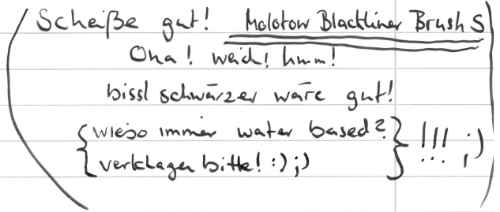 (Scheiße gut! Molotow Blackliner Brush S)
Oha! weich! hmm!
bissl schwärzer wäre gut!
{wieso immer water based?
verklagen bitte! :) ;)} !!! ;)